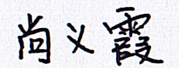 尚义霞